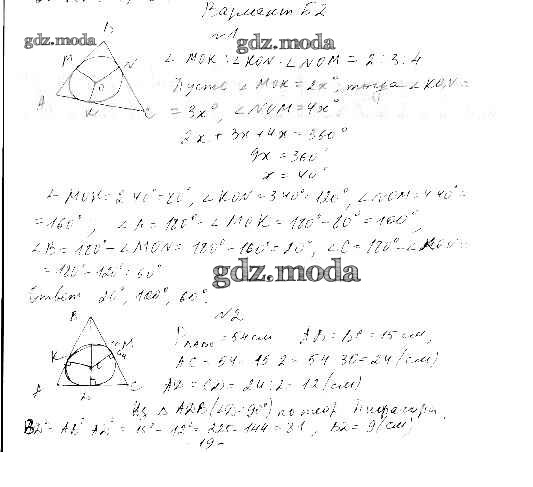 Вариант Б2
№1
gdz.moda
gdz.moda
B
M
N
O
A
K
C
∠ MOK : ∠ KON : ∠ NOM = 2 : 3 : 4
Пусть ∠ MOK = 2x°, тогда ∠ KON =
= 3x°, ∠ NOM = 4x°
2x + 3x + 4x = 360°
9x = 360°
x = 40°
∠ MOK = 2·40° = 80°, ∠ KON = 3·40° = 120°, ∠ NOM = 4·40° =
= 160°, ∠ A = 180° - ∠ MOK = 180° - 80° = 100°,
∠ B = 180° - ∠ MON = 180° - 160° = 20°, ∠ C = 180° -
= 180° - 120° = 60°
gdz.moda
Ответ 20°, 100°, 60°.
№2
B
K
M
O
A
C
= 54 см AB = BC = 15 см,
AC = 54 - 15·2 = 54 - 30 = 24 (см)
AD = CD = 24 : 2 = 12 (см)
Из Δ ADB (∠D = 90°) по теор. Пифагора,
= 15² - 12² = 225 - 144 = 81, BD = 9 (см)
- 19 -